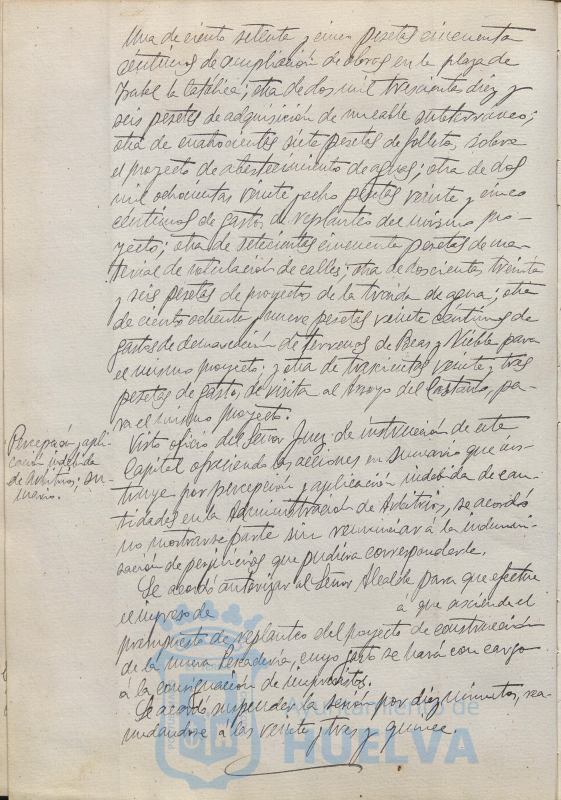 Una de ciento setenta y cinco pesetas cincuenta
céntimos de ampliación de obras en la plaza de
Isabel la Católica; otra de dos mil trescientas diez y
seis pesetas de adquisición de mueable subterraneo;
otra de cuatrocientas siete pesetas de folletos, sobre
el proyecto de abastecimiento de aguas; otra de dos
mil ochocientas veinte y ocho pesetas veinte y cinco
céntimos de gastos de replanteo del mismo pro-
yecto; otra de setecientas cincuenta pesetas de ma-
terial de rotulación de calles; otra de doscientas treinta
y seis pesetas de proyectos de la traída de agua; otra
de ciento ochenta y nueve pesetas veinte céntimos de
gastos de demarcación de terrenos de Beas y Niebla para
el mismo proyecto; y otra de trescientas veinte y tres
pesetas de gastos de visita al Arroyo del Castaño, pa-
ra el mismo proyecto.
Percepción y apli-
cación indebida
de Arbitrios; su-
mario.
Visto oficio del Señor Juez de instrucción de esta
Capital ofreciendo las acciones en sumario que ins-
truye por percepción y aplicación indebida de can-
tidades en la Administración de Arbitrios, se acordó
no mostrarse parte sin renunciar á la indemni-
zación de perjuicios que pudiera corresponderle.
Se acordó autorizar al Señor Alcalde para que efectúe
el ingreso de á que asciende el
presupuesto de replanteo del proyecto de construcción
de la nueva Pescadería, cuyo gasto se hará con cargo
á la consignación de imprevistos.
Se acordó suspender la sesión por diez minutos, rea-
nudandose á las veinte y tres y quince.
Ayuntamiento de
HUELVA